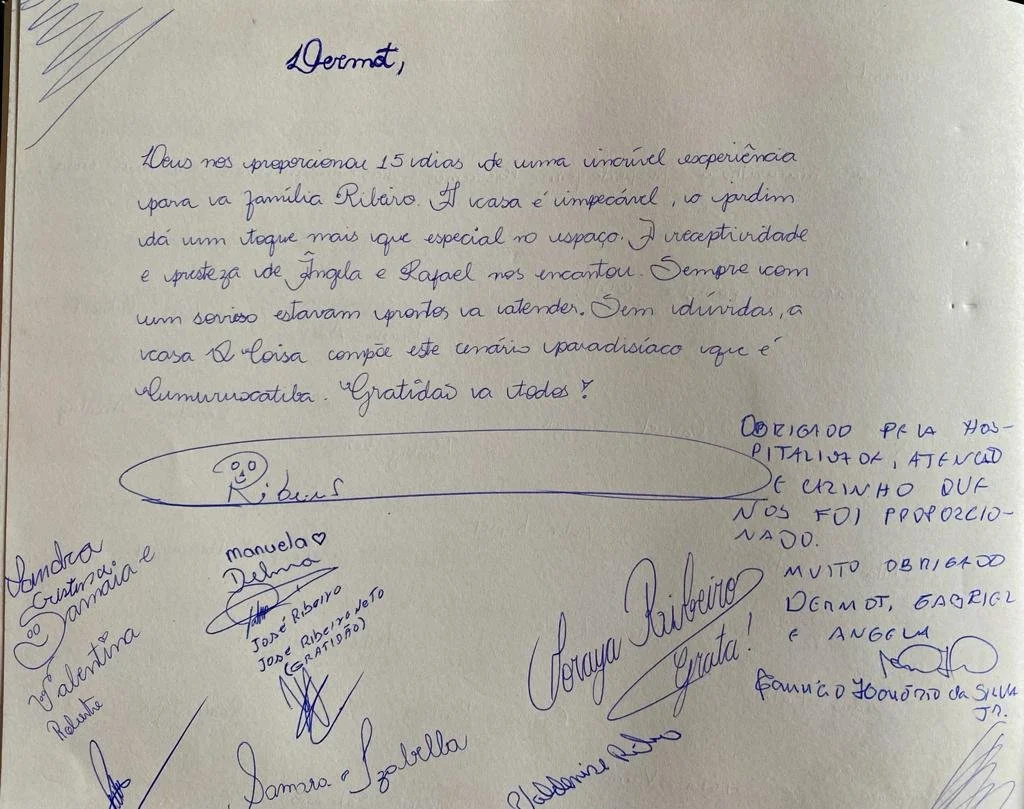 Dermot,
Deus nos proporcionou 15 dias de uma incrível experiência
para a família Ribeiro. A casa é impecável, o jardim
dá um toque mais que especial no espaço. A receptividade
e presteza de Ângela e Rafael nos encantou. Sempre com
um sorriso estavam prontos a atender. Sem dúvidas, a
casa D Loisa compõe este cenário paradisíaco que é
Cumuruxatiba. Gratidão a todos!
OBRIGADO PELA HOS-
PITALIDADE, ATENÇÃO
E CARINHO QUE
NOS FOI PROPORCIO-
NADO.
MUITO OBRIGADO
DERMOT, GABRIEL
E ANGELA
JR.
Sandra
Cristina
Samaia e
Valentina
manuela
Delma
José Ribeiro
José Ribeiro Neto
(GRATIDÃO)
Soraya Ribeiro
Grata!
Samara e Izabella